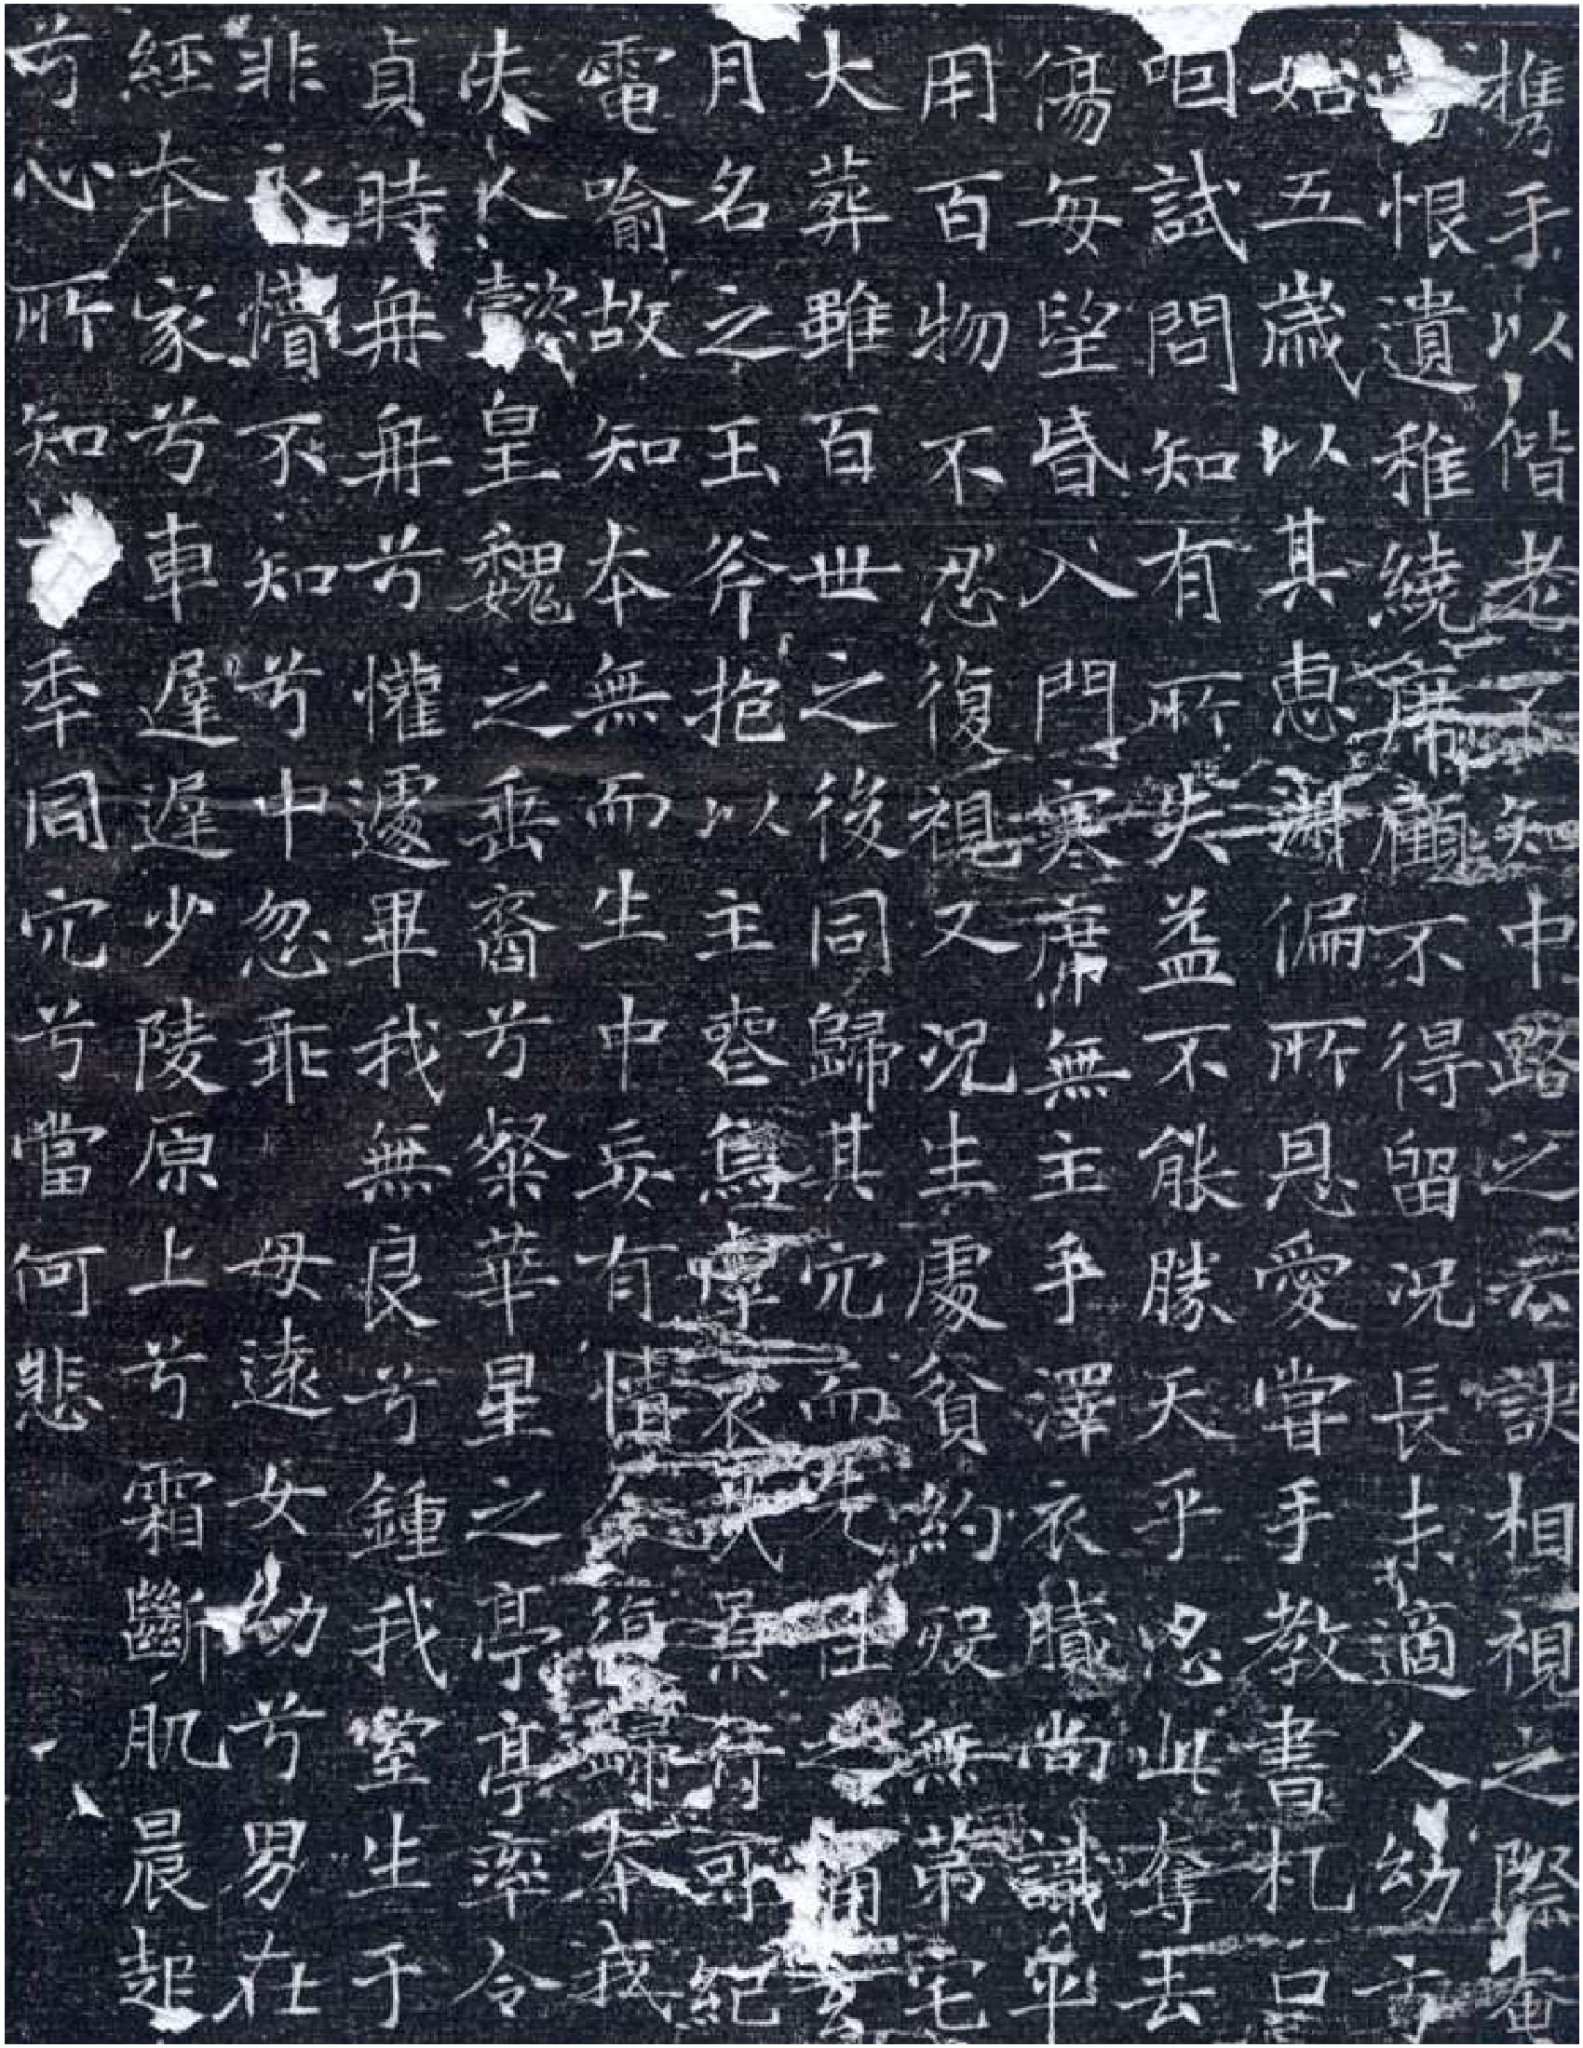 携手以偕老不知中路之云訣相視之際奄
恨遺稚繞席顧不得留況長未適人幼方
始五歲以其惠淑偏所恩愛嘗手教書札口
呬試問知有所失益不能勝天乎忍此奪去
傷每望昏入門寒席無主手澤衣膩尚識平
用百物不忍復視又況生處貧約歿無第宅
大葬雖百世之後同歸其穴而
月名之玉斧抱以主喪焉虖哀哉景符哥紀
電喻故知本無而生中妄有情今復歸本我
失人懿皇魏之垂裔兮粲華星之亭亭率令
貞時冉冉兮懽遽畢我無良兮鍾我室生于
非永懵不知兮中忽乖母遠女幼兮男在
經本家兮車遲遲少陵原上兮霜斷肌晨趍
兮心所知百年同穴兮當何悲